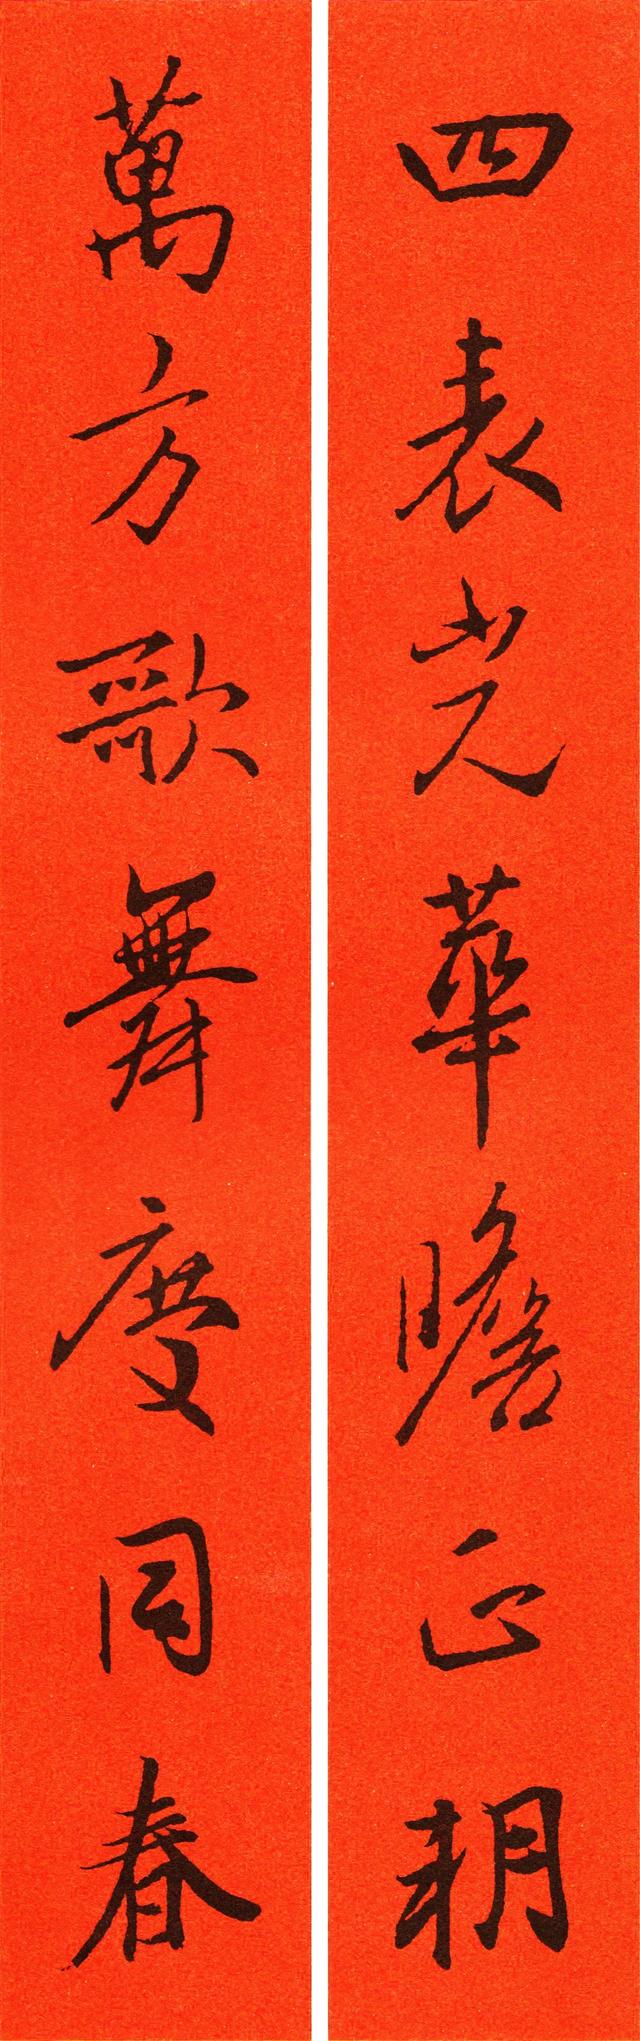 四表光華瞻正朝
萬方歌舞慶同春